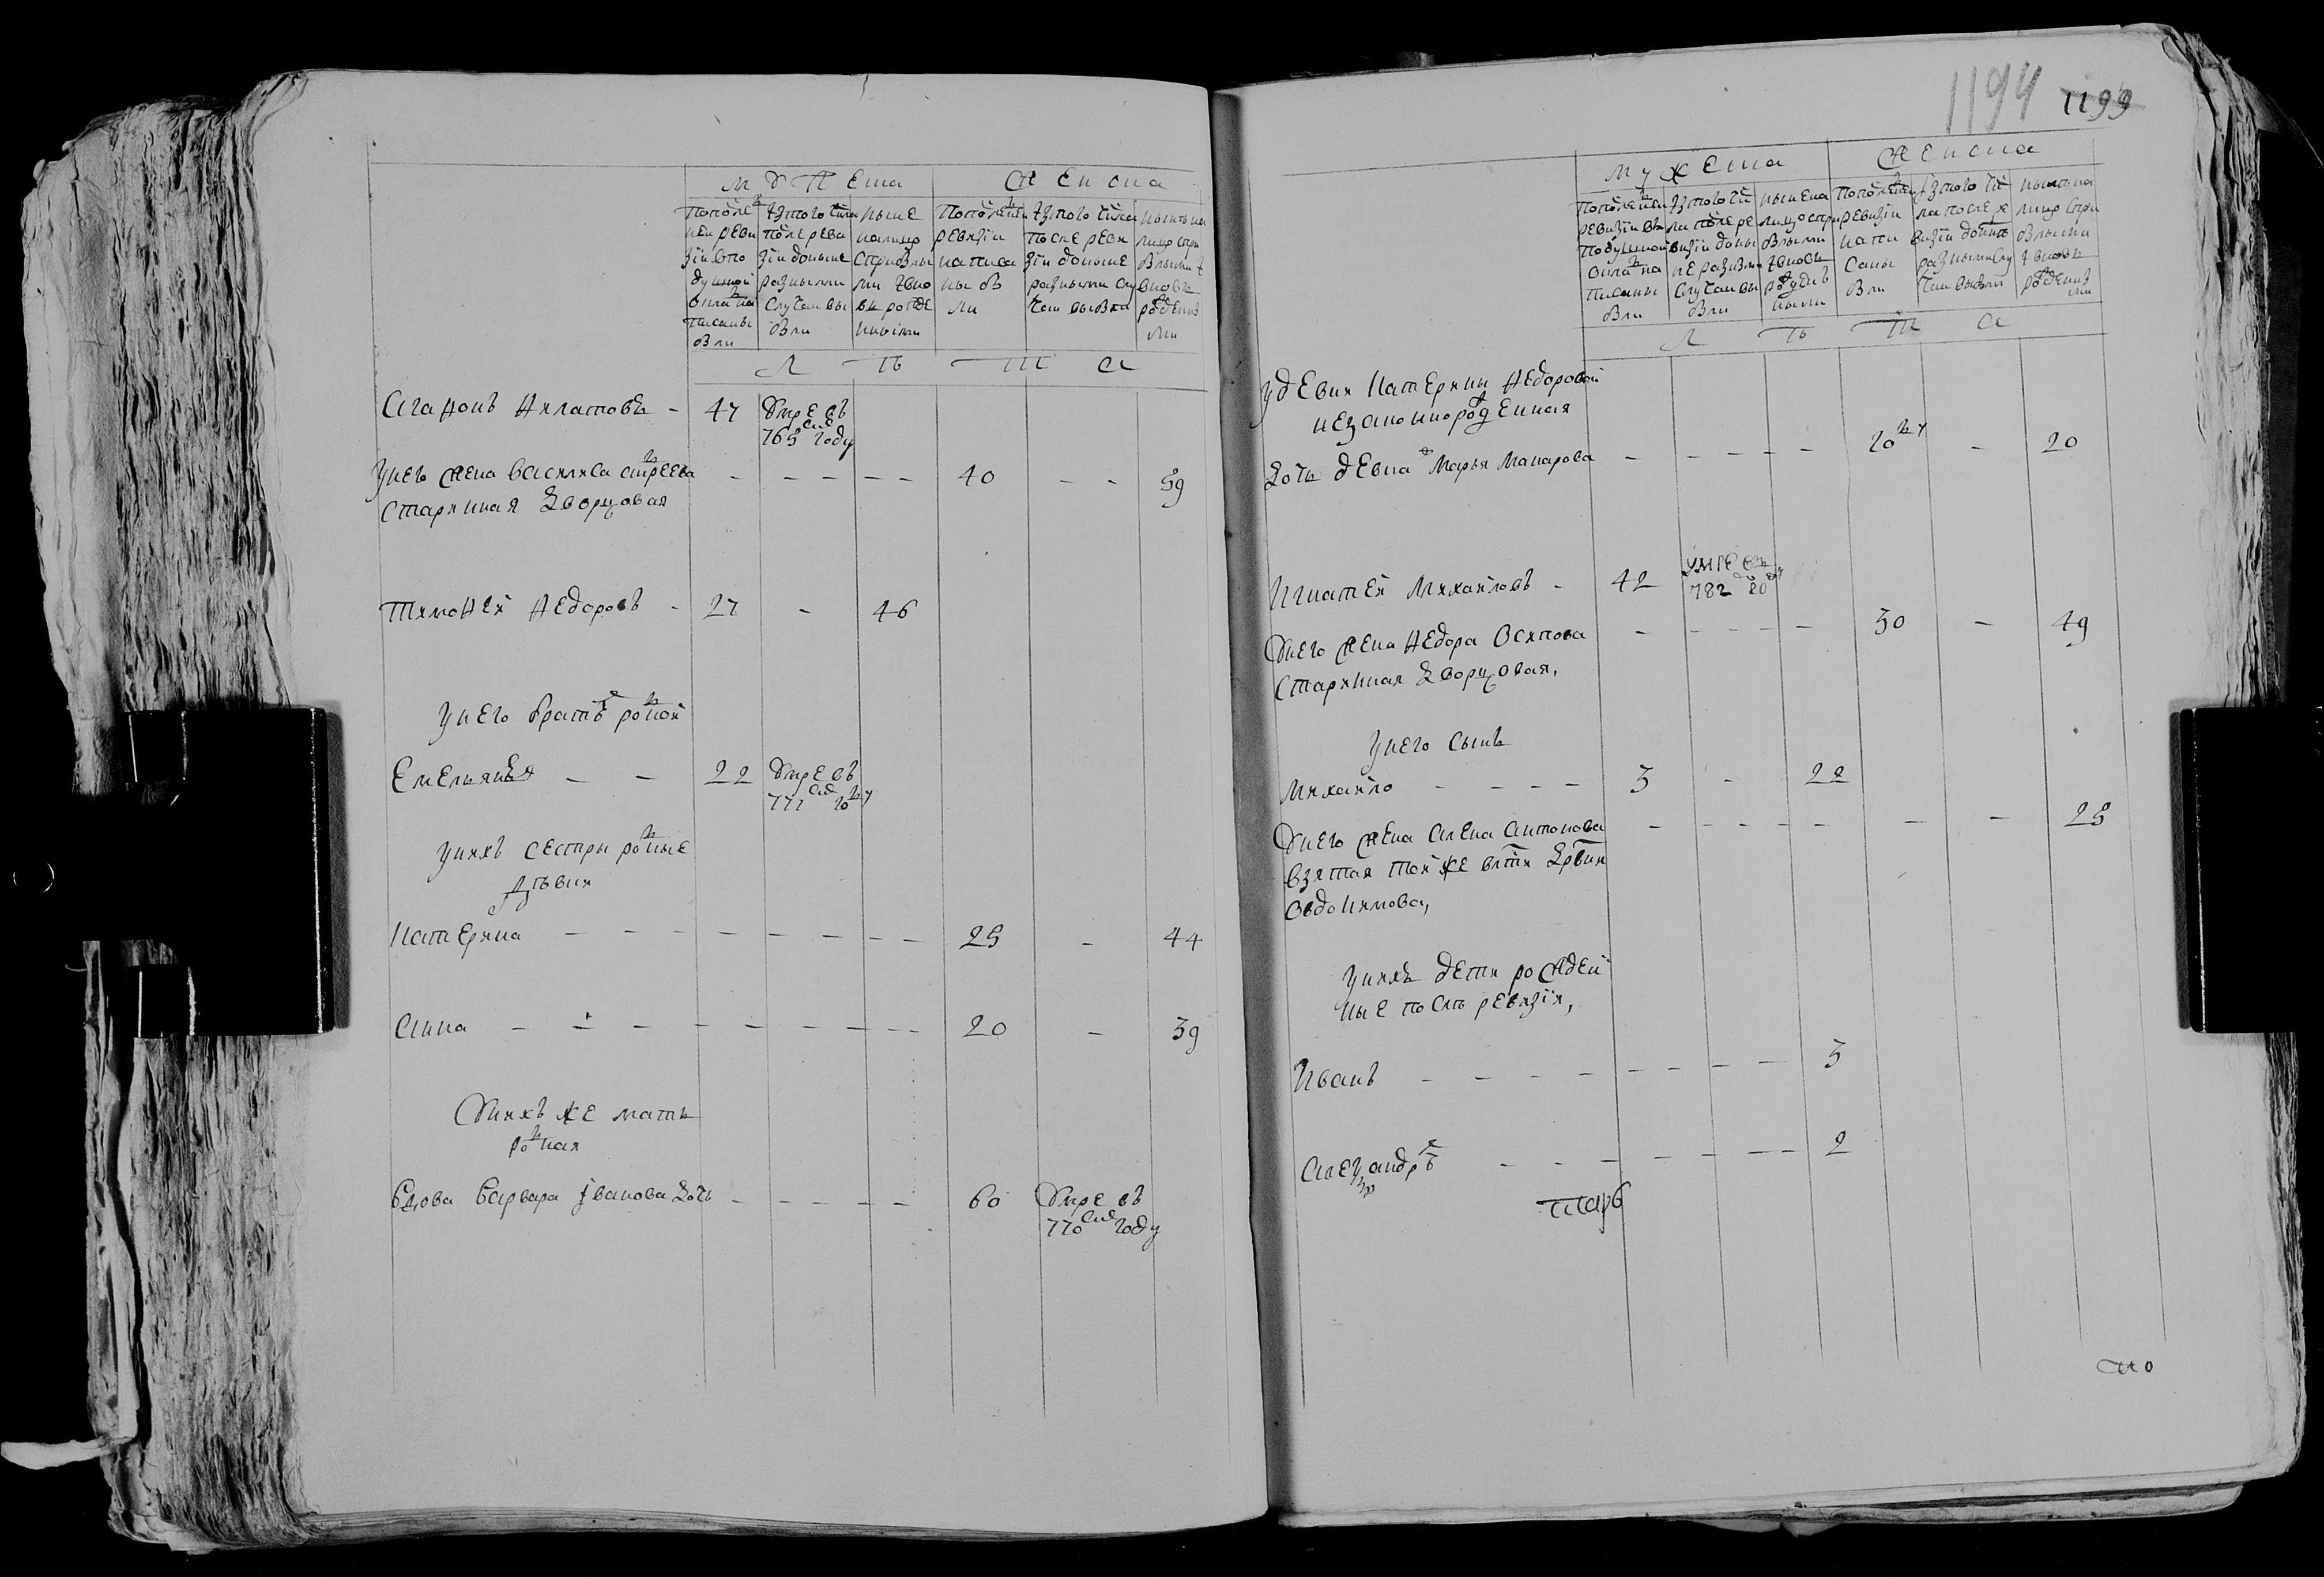 мужеска женска
По последней ревизии в подушной оклад написаны были
Из того числа после ревизии доныне разными случаи выбыли
Ныне налицо с прибылыми и вновь рожденными
По последней ревизии написаны были
Из того числа после ревизии доныне разными случаи выбыли
Ныне на лицо с прибылыми и вновь рожденными
Л ѣ т а
Агафонъ Филатовъ - 47 Умре въ
765м году
У него жена Василиса Андреева - - - - - 40 - - 59
старинная дворцовая
Тимофей Федоровъ - 27 - 46
У него братъ родной
Емельянъ - - 22 Умре въ
771м году
У нихъ сестры родные
дѣвки
Катерина - - - - - - - - 25 - 44
Анна - - - - - - - - 20 - 39
У нихъ же мать
родная
Вдова Варвара Іванова дочь - - - - - 60 Умре въ
770м году
1194 1199
мужеска женска
По последней ревизии в подушной оклад написаны были
Из того числа после ревизии доныне разными случаи выбыли
Ныне на лицо с прибылыми и вновь рожденными
По последней ревизии написаны были
Из того числа после ревизии доныне разными случаи выбыли
Ныне на лицо с прибылыми и вновь рожденными
Л ѣ т а
У девки Катерины Федоровой
незаконнорожденная
дочь девка Марья Макарова - - - - - 20 - 20
Игнатей Михайловъ - 42 умре въ
782 году
У него жена Федора Осипова - - - - - 30 - 49
старинная дворцовая,
У него сынъ
Михайло - - - - 3 - 22
У него жена Алена Антонова - - - - - - - 25
взятая той же вотчины деревни
Овдокимова,
У нихъ дети рожден
ные послѣ ревизіи,
Иванъ - - - - - - - - 3
Александръ - - - - - - - - 2